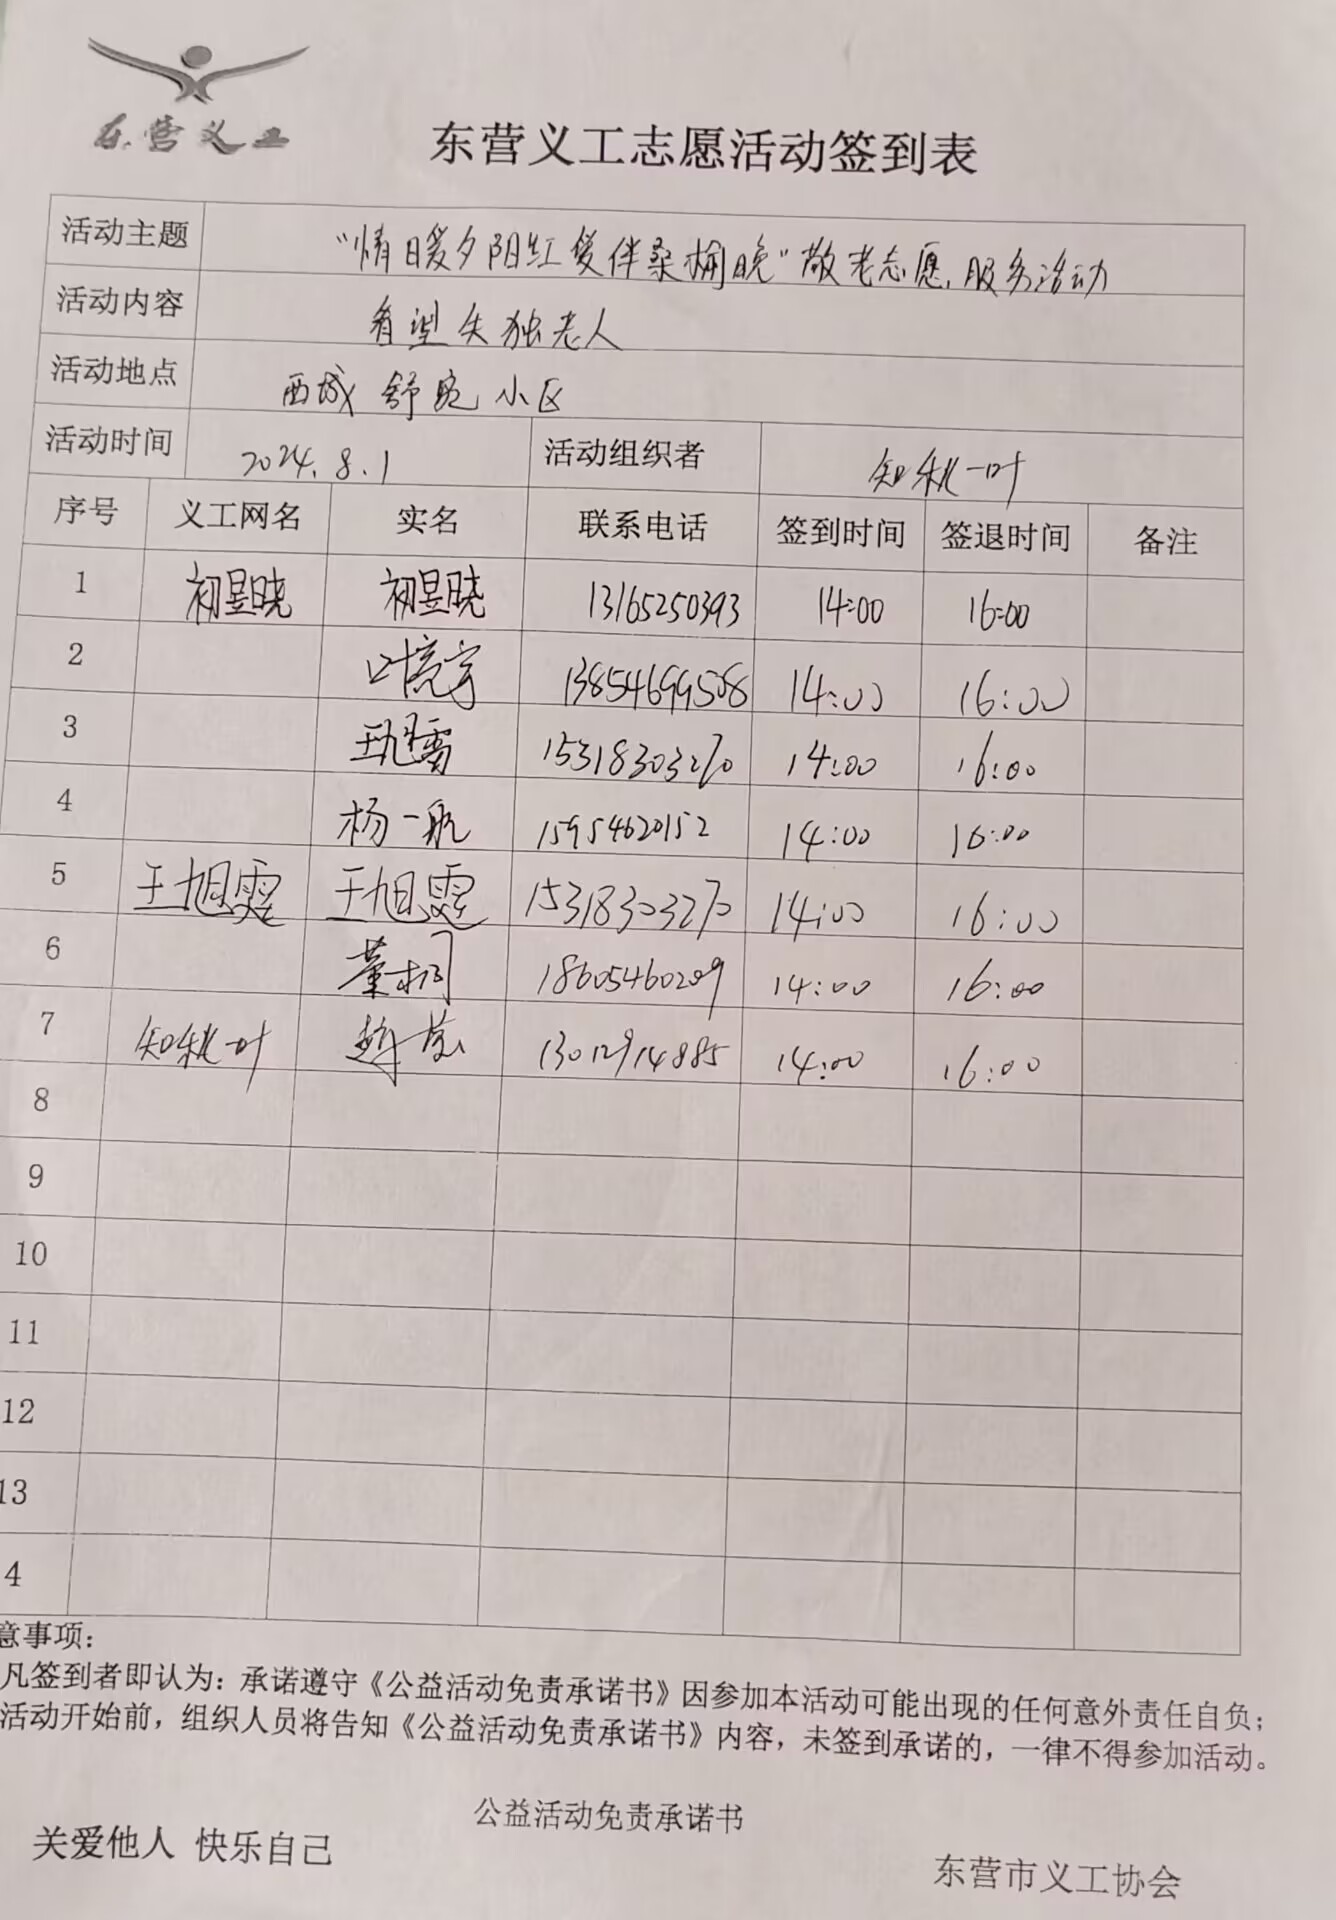 东营义工
东营义工志愿活动签到表
活动主题 “情暖夕阳红 爱伴桑榆晚”敬老志愿服务活动
活动内容 看望失独老人
活动地点 西城 舒苑 小区
活动时间 2024.8.1 活动组织者 知秋一叶
序号 义工网名 实名 联系电话 签到时间 签退时间 备注
1 初昱晓 初昱晓 13165250393 14:00 16:00
2 13854699508 14:00 16:00
3 15318303270 14:00 16:00
4 杨一航 15954620152 14:00 16:00
5 王旭霆 王旭霆 15318303270 14:00 16:00
6 董桐 18605460209 14:00 16:00
7 知秋一叶 13012914885 14:00 16:00
8
9
10
11
12
13
4
意事项：
凡签到者即认为：承诺遵守《公益活动免责承诺书》因参加本活动可能出现的任何意外责任自负；
活动开始前，组织人员将告知《公益活动免责承诺书》内容，未签到承诺的，一律不得参加活动。
公益活动免责承诺书
关爱他人 快乐自己
东营市义工协会